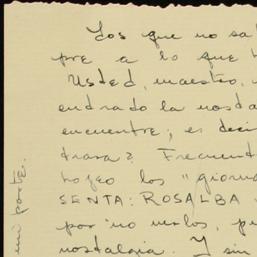 Los que no sa
pre a lo que
Usted, maestro,
endrado la nosta
encuentre; es deci
trara? Frecuent
hojeo los "giorna
SENTA: ROSALBA
por no verlos, pe
nostalgia. Y sin
mi parte.